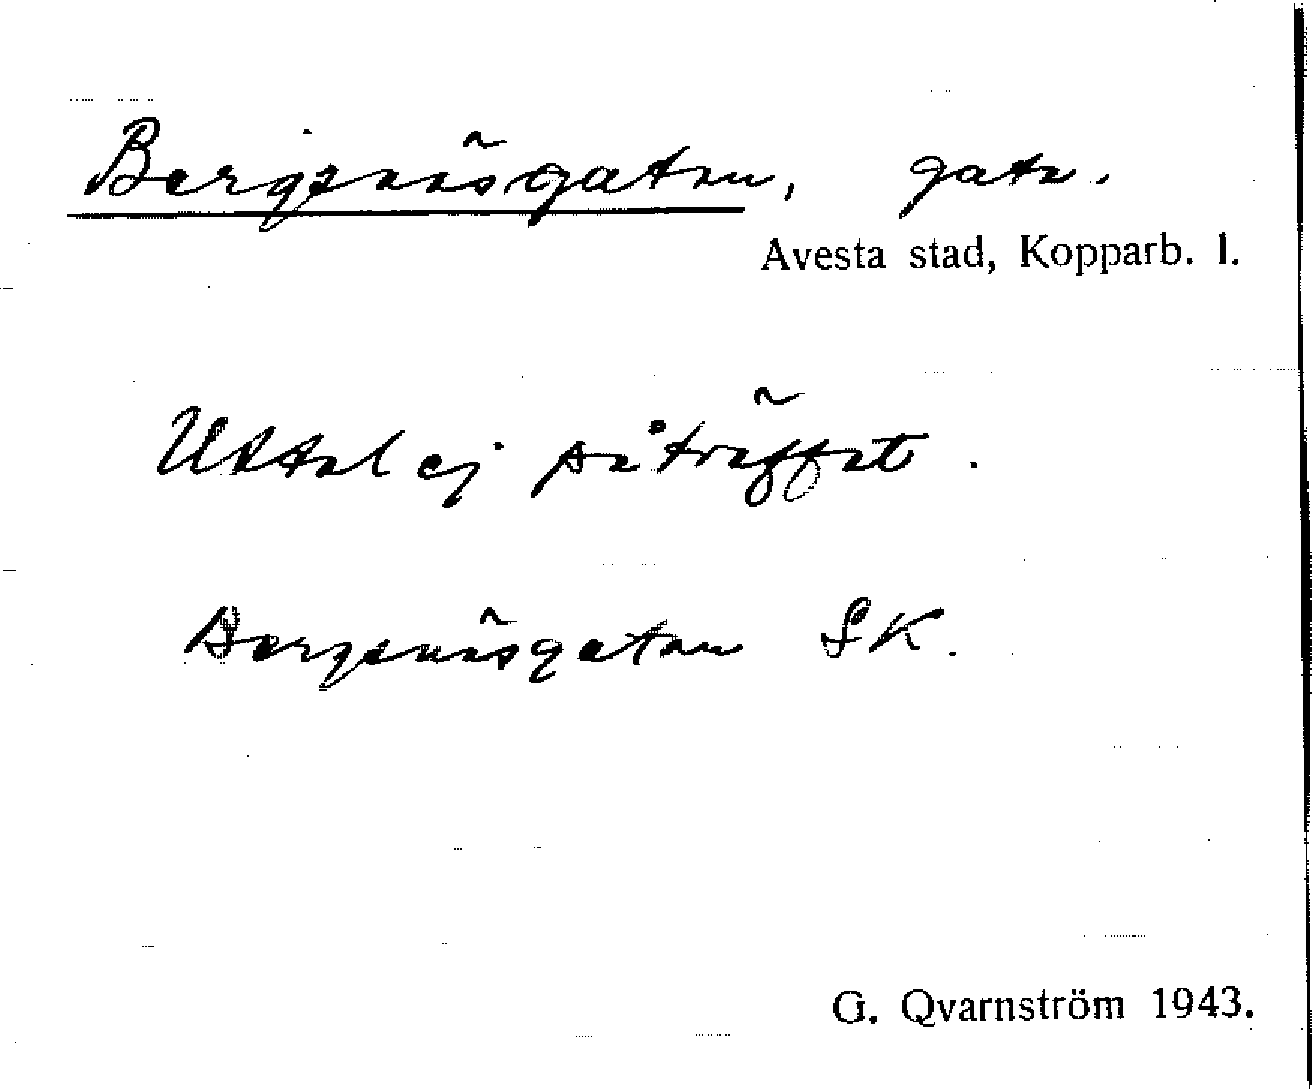 Bergsnäsgatan, gata.
Avesta stad, Kopparb. l.
Uttal ej påträffat.
Bergsnäsgatan SK.
G. Qvarnström 1943.